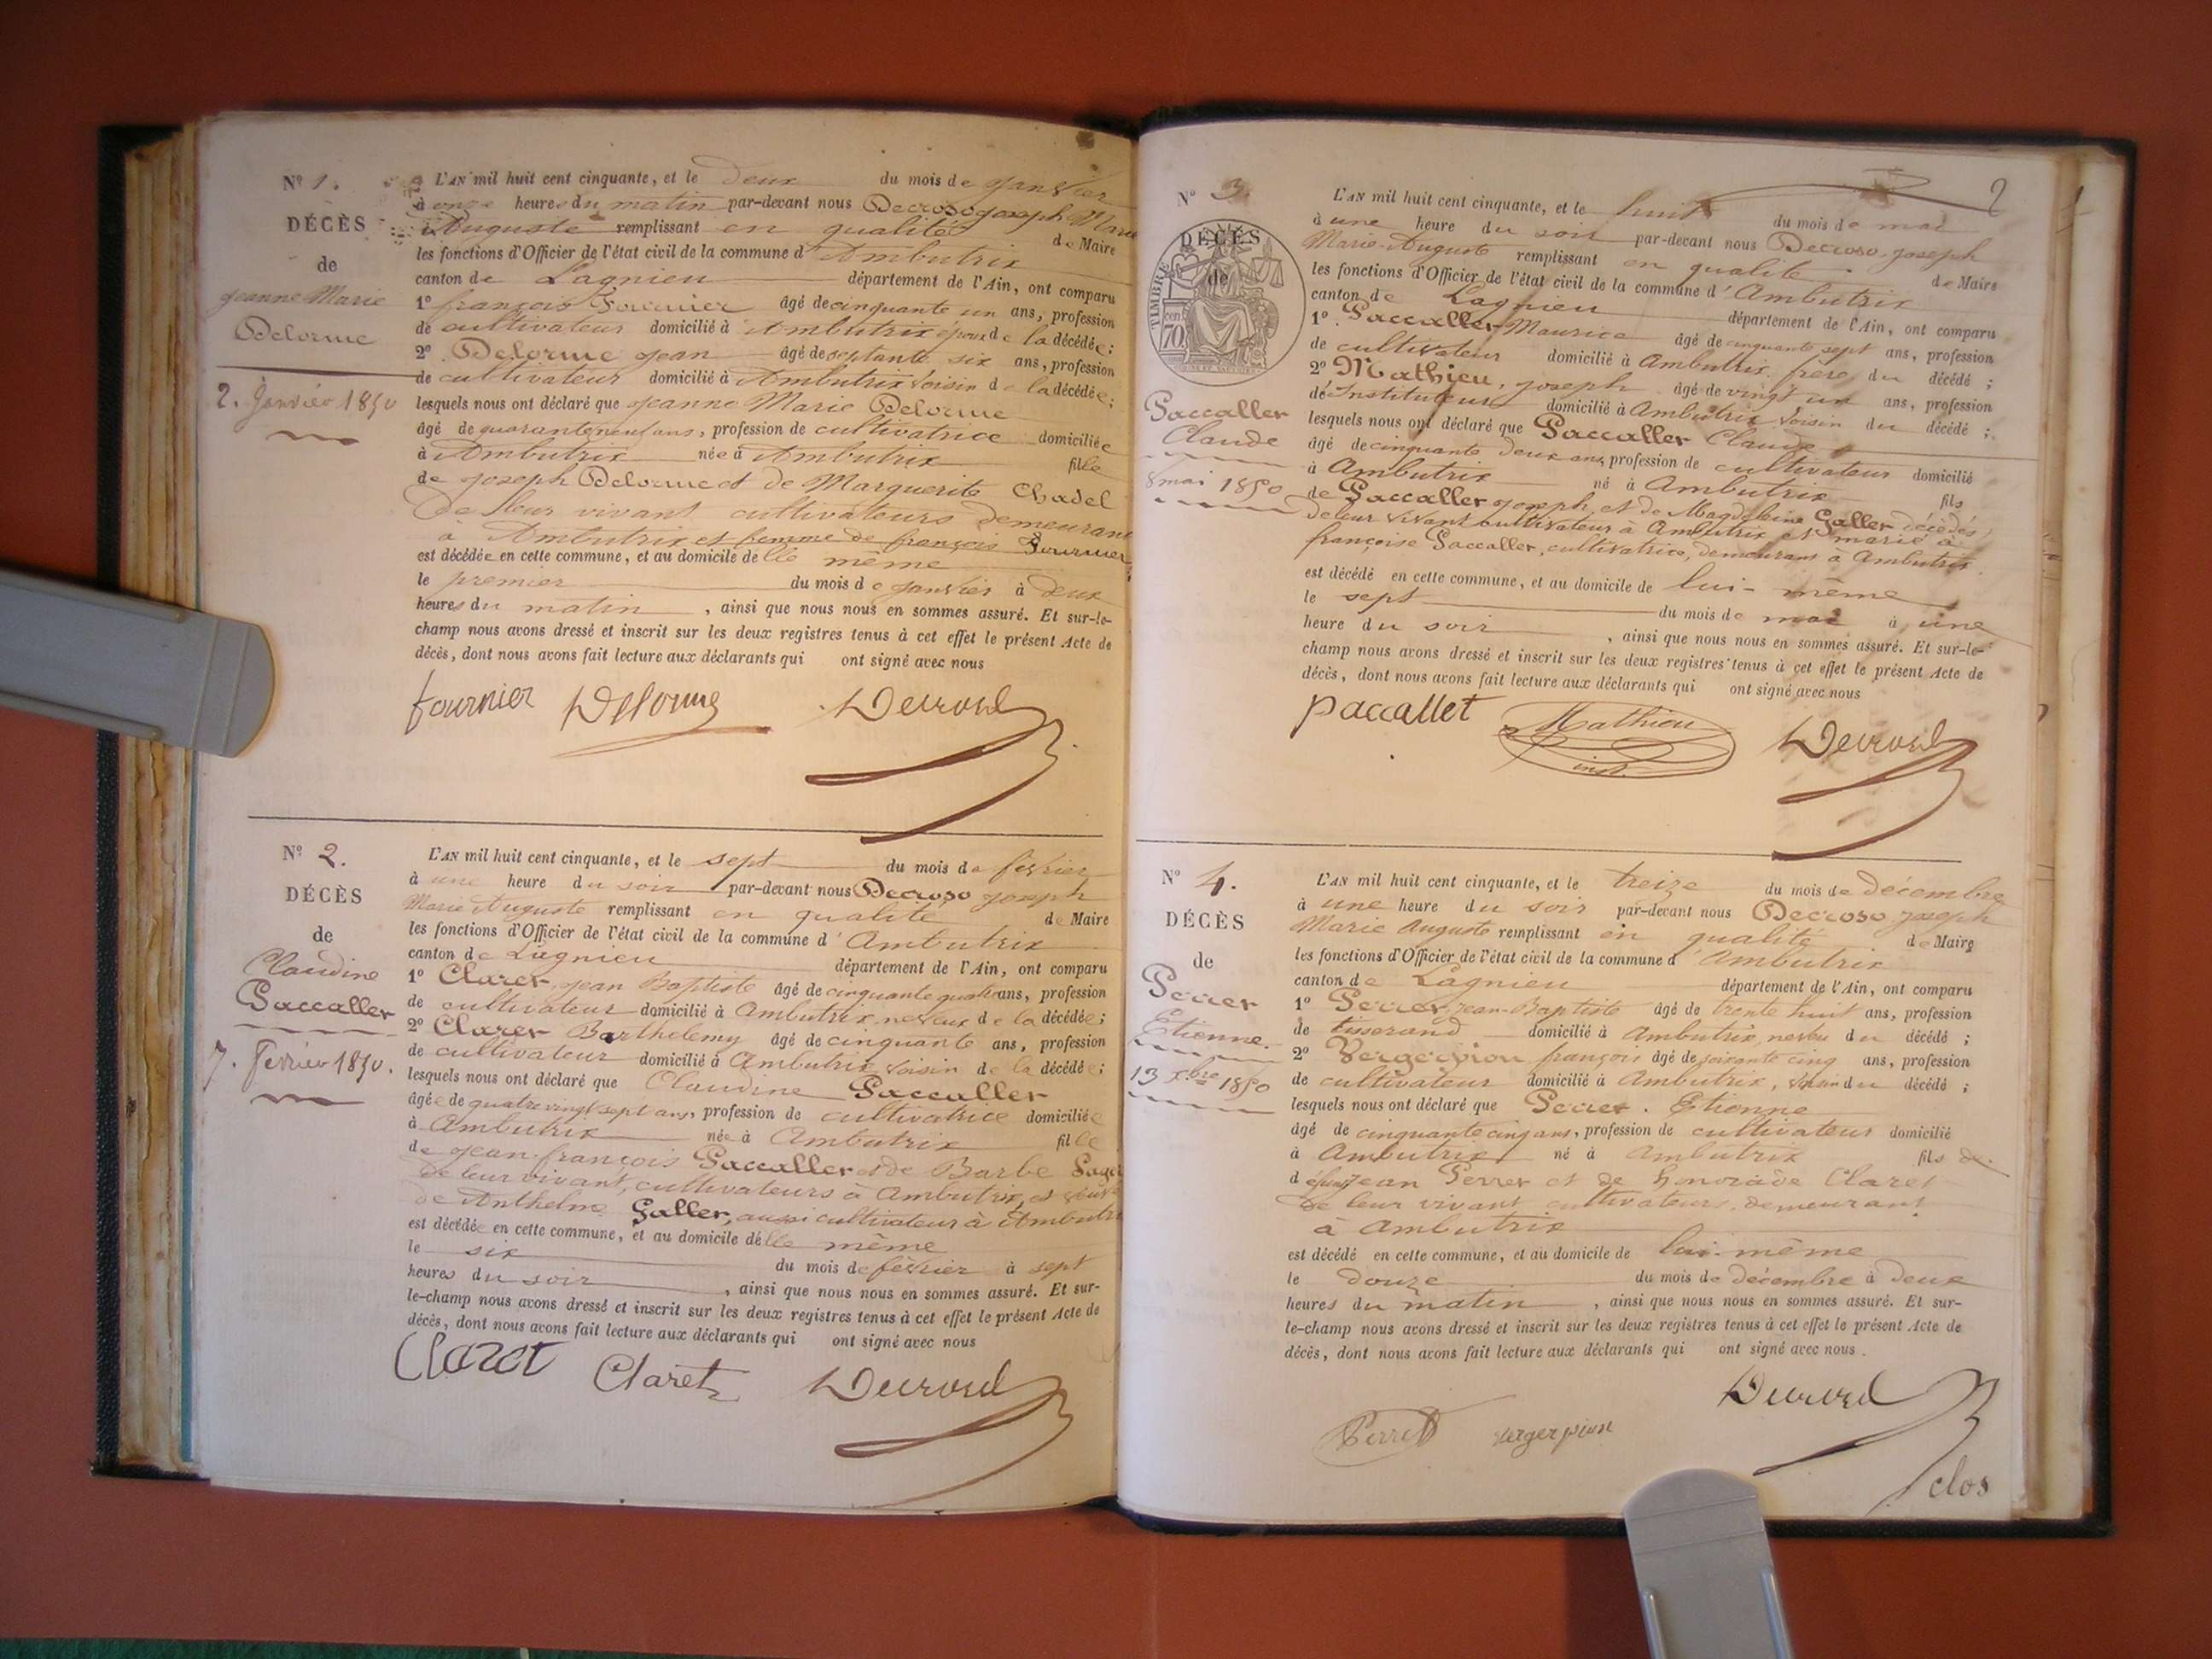 N° 1.
DÉCÈS
de
jeanne Marie
Delorme
2. Janvier 1850
L'AN mil huit cent cinquante, et le deux du mois de janvier
à onze heures du matin par-devant nous Decroso joseph Marie
Auguste remplissant en qualité de Maire
les fonctions d'Officier de l'état civil de la commune d'Ambutrix
canton de Lagnieu département de l'Ain, ont comparu
1° françois Fournier âgé de cinquante un ans, profession
de cultivateur domicilié à Ambutrix époux de la décédée;
2° Delorme jean âgé de septante six ans, profession
de cultivateur domicilié à Ambutrix voisin de la décédée;
lesquels nous ont déclaré que jeanne Marie Delorme
âgé de quarante neuf ans, profession de cultivatrice domiciliée
à Ambutrix née à Ambutrix fille
de joseph Delorme et de Marguerite Chadel
de leur vivant cultivateurs demeurant
à Ambutrix et femme de françois Fournier
est décédée en cette commune, et au domicile delle même
le premier du mois de janvier à deux
heures du matin, ainsi que nous nous en sommes assuré. Et sur-le-
champ nous avons dressé et inscrit sur les deux registres tenus à cet effet le présent Acte de
décès, dont nous avons fait lecture aux déclarants qui ont signé avec nous
fournier Delorme Decroso
N° 2.
DÉCÈS
de
Claudine
Paccallet
7. fevrier 1850.
L'AN mil huit cent cinquante, et le sept du mois de février
à une heure du soir par-devant nous Decroso joseph
Marie Auguste remplissant en qualité de Maire
les fonctions d'Officier de l'état civil de la commune d'Ambutrix
canton de Lagnieu département de l'Ain, ont comparu
1° Claret, jean Baptiste âgé de cinquante quatre ans, profession
de cultivateur domicilié à Ambutrix, neveux de la décédée;
2° Claret Barthelemy âgé de cinquante ans, profession
de cultivateur domicilié à Ambutrix voisin de la décédée;
lesquels nous ont déclaré que Claudine Paccallet
âgée de quatre vingt sept ans, profession de cultivatrice domiciliée
à Ambutrix née à Ambutrix fille
de jean françois Paccallet et de Barbe
de leur vivant, cultivateurs à Ambutrix, et veuve
de Anthelme Gallet, aussi cultivateur à Ambutrix
est décédée en cette commune, et au domicile delle même
le six du mois de février à sept
heures du soir, ainsi que nous nous en sommes assuré. Et sur-
le-champ nous avons dressé et inscrit sur les deux registres tenus à cet effet le présent Acte de
décès, dont nous avons fait lecture aux déclarants qui ont signé avec nous
Claret Claret Decroso
2
N° 3.
DÉCÈS
de
TIMBRE
70
Paccallet
Claude
8 mai 1850
L'AN mil huit cent cinquante, et le huit du mois de mai
à une heure du soir par-devant nous Decroso, joseph
Marie-Auguste remplissant en qualité de Maire
les fonctions d'Officier de l'état civil de la commune d'Ambutrix
canton de Lagnieu département de l'Ain, ont comparu
1° Paccallet Maurice âgé de cinquante sept ans, profession
de cultivateur domicilié à Ambutrix, frère du décédé;
2° Mathieu, joseph âgé de vingt un ans, profession
de Instituteur domicilié à Ambutrix voisin du décédé;
lesquels nous ont déclaré que Paccallet Claude
âgé de cinquante deux ans, profession de cultivateur domicilié
à Ambutrix né à Ambutrix fils
de Paccallet joseph, et de Magdeleine Gallet décédés
de leur vivant cultivateur à Ambutrix et marié à
françoise Paccallet, cultivatrice, demeurant à Ambutrix.
est décédé en cette commune, et au domicile de lui-même
le sept du mois de mai à une
heure du soir, ainsi que nous nous en sommes assuré. Et sur-le-
champ nous avons dressé et inscrit sur les deux registres tenus à cet effet le présent Acte de
décès, dont nous avons fait lecture aux déclarants qui ont signé avec nous
paccallet Mathieu Decroso
inst.
N° 4.
DÉCÈS
de
Perret
Etienne.
13 xbre 1850
L'AN mil huit cent cinquante, et le treize du mois de décembre
à une heure du soir par-devant nous Decroso, joseph
Marie Auguste remplissant en qualité de Maire
les fonctions d'Officier de l'état civil de la commune d'Ambutrix
canton de Lagnieu département de l'Ain, ont comparu
1° Perret, jean-Baptiste âgé de trente huit ans, profession
de tisserand domicilié à Ambutrix, neveu du décédé;
2° Vergerpion françois âgé de soixante cinq ans, profession
de cultivateur domicilié à Ambutrix, voisin du décédé;
lesquels nous ont déclaré que Perret. Etienne
âgé de cinquante cinq ans, profession de cultivateur domicilié
à Ambutrix né à Ambutrix fils de
défunt jean Perret et de honorade Claret
de leur vivant cultivateurs, demeurant
à Ambutrix
est décédé en cette commune, et au domicile de lui-même
le douze du mois de décembre à deux
heures du matin, ainsi que nous nous en sommes assuré. Et sur-
le-champ nous avons dressé et inscrit sur les deux registres tenus à cet effet le présent Acte de
décès, dont nous avons fait lecture aux déclarants qui ont signé avec nous.
Perret vergerpion Decroso
clos